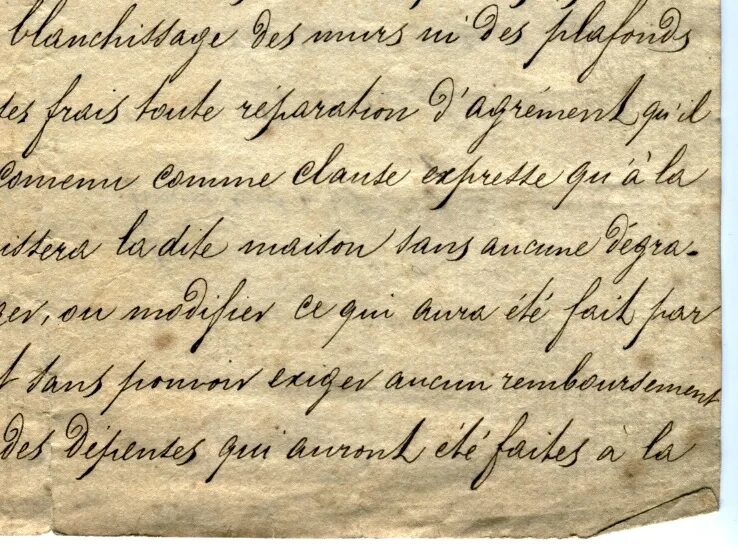 blanchissage des murs ni des plafonds
ses frais toute réparation d'agrément qu'il
convenu comme clause expresse qu'à la
issera la dite maison sans aucune dégra-
ger, ou modifier ce qui aura été fait par
t sans pouvoir exiger aucun remboursement
des dépenses qui auront été faites à la